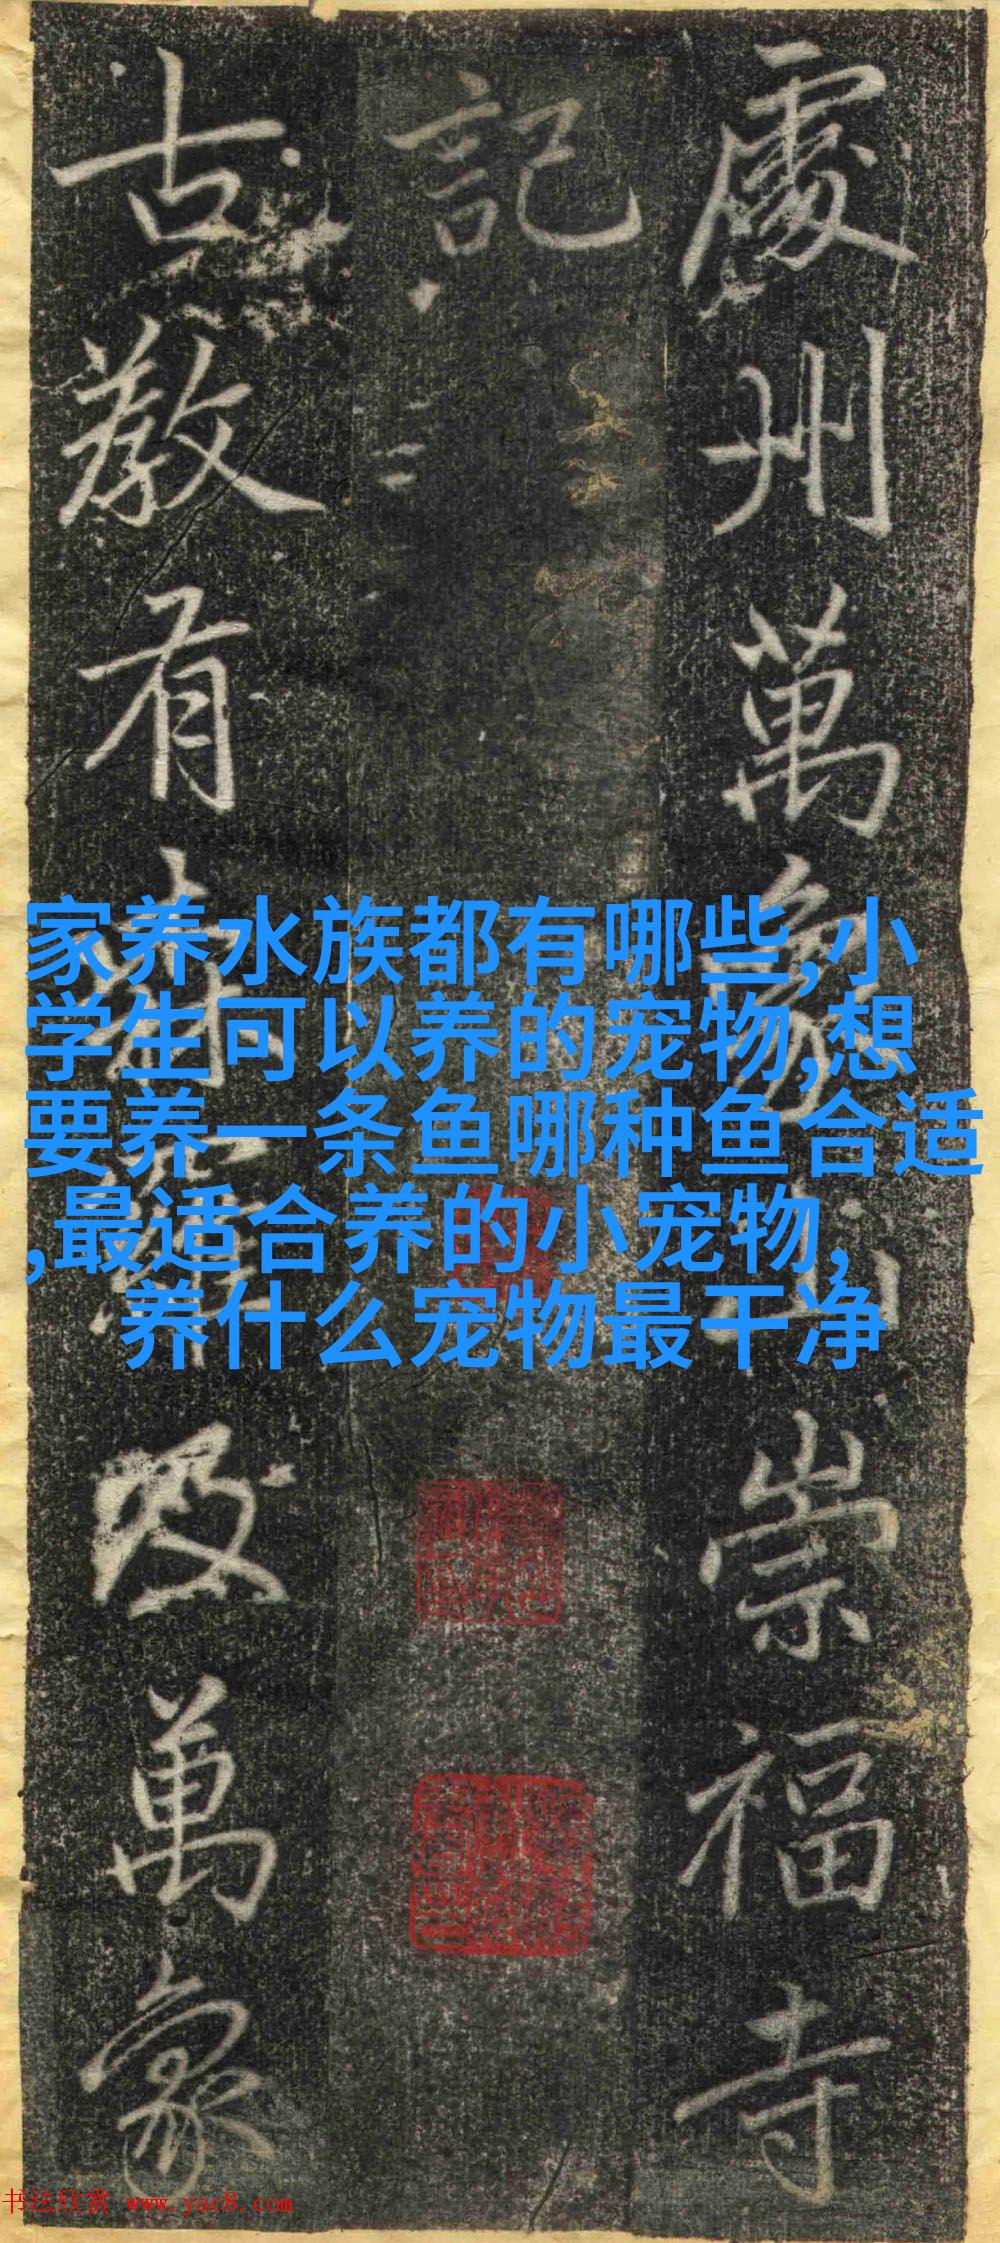 處州萬象山崇福寺
記
古教有
萬象
家养水族都有哪些,小
学生可以养的宠物,想
要养一条鱼哪种鱼合适
,最适合养的小宠物,
养什么宠物最干净
书法欣赏 www.yac8.com